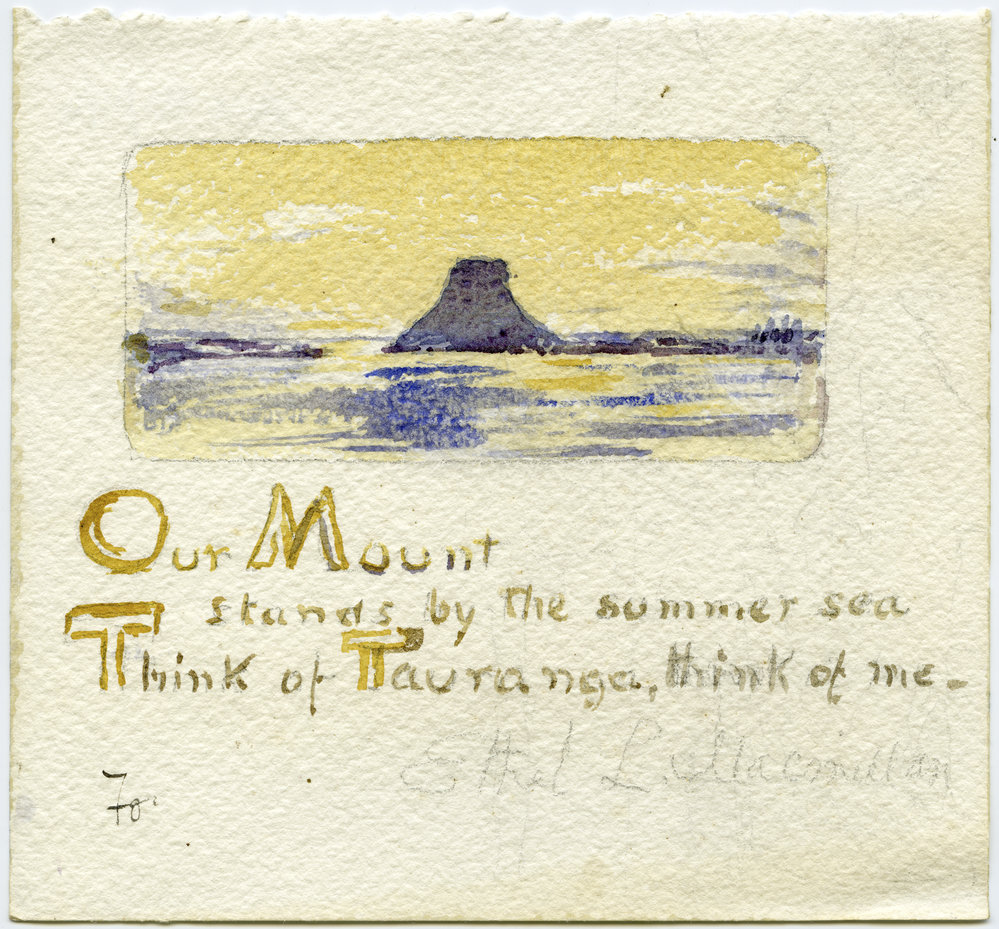 Our Mount
stands by the summer sea
Think of Tauranga, think of me.
Ethel L. Macmillan
70